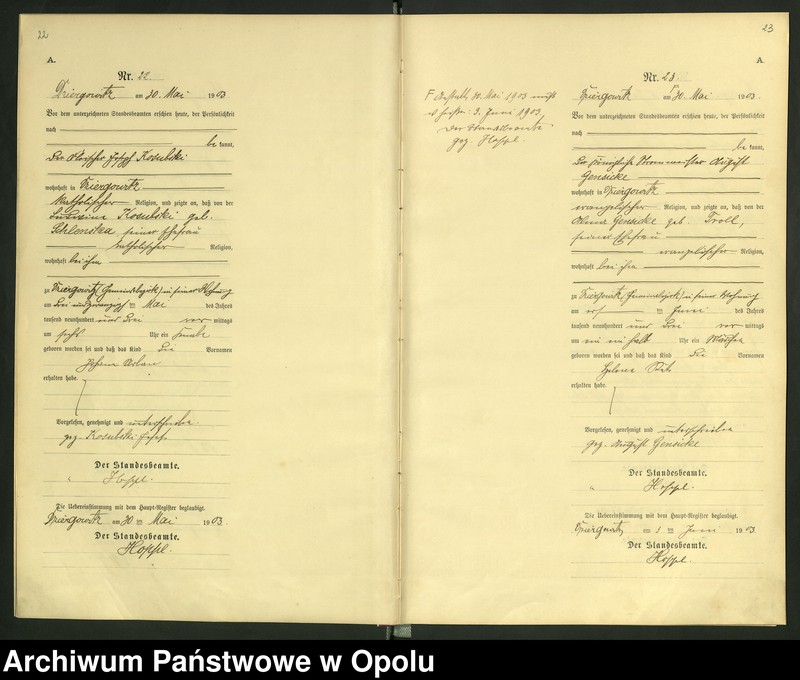 22
A.
Nr. 22
Dziergowitz am 30. Mai 1903
Vor dem unterzeichneten Standesbeamten erschien heute, der Persönlichkeit
nach
be kannt,
Kosubski
wohnhaft in Dziergowitz
katholischer Religion, und zeigte an, daß von der
Kosubski geb.
seiner Ehefrau
katholischer Religion,
wohnhaft bei ihm
zu Dziergowitz (Gemeindebezirk) in seiner Wohnung
am drei und zwanzigsten Mai des Jahres
tausend neunhundert und drei vor mittags
um sechs Uhr ein Knabe
geboren worden sei und daß das Kind die Vornamen
Johann Urban
erhalten habe.
Vorgelesen, genehmigt und unterschrieben
gez. Kosubski Josef
Der Standesbeamte.
Hoppl.
Die Uebereinstimmung mit dem Haupt-Register beglaubigt.
Dziergowitz am 30 ten Mai 1903
Der Standesbeamte.
Hoppl.
23
F Anstatt 30. Mai 1903 muß
es heißen: 3. Juni 1903,
Der Standesbeamte
gez. Hoppl.
A.
Nr. 23.
Dziergowitz am F 30. Mai 1903.
Vor dem unterzeichneten Standesbeamten erschien heute, der Persönlichkeit
nach
be kannt,
der königliche Strommeister August
Gensicke
wohnhaft in Dziergowitz
evangelischer Religion, und zeigte an, daß von der
Gensicke geb. Troll,
seiner Ehefrau
evangelischer Religion,
wohnhaft bei ihm
zu Dziergowitz (Gemeindebezirk) in seiner Wohnung
am ersten Juni des Jahres
tausend neunhundert und drei vor mittags
um ein ein halb Uhr ein Mädchen
geboren worden sei und daß das Kind die Vornamen
Helene
erhalten habe.
Vorgelesen, genehmigt und unterschrieben
gez. August Gensicke
Der Standesbeamte.
Hoppl.
Die Uebereinstimmung mit dem Haupt-Register beglaubigt.
Dziergowitz am 3 ten Juni 1903
Der Standesbeamte.
Hoppl.
Archiwum Państwowe w Opolu